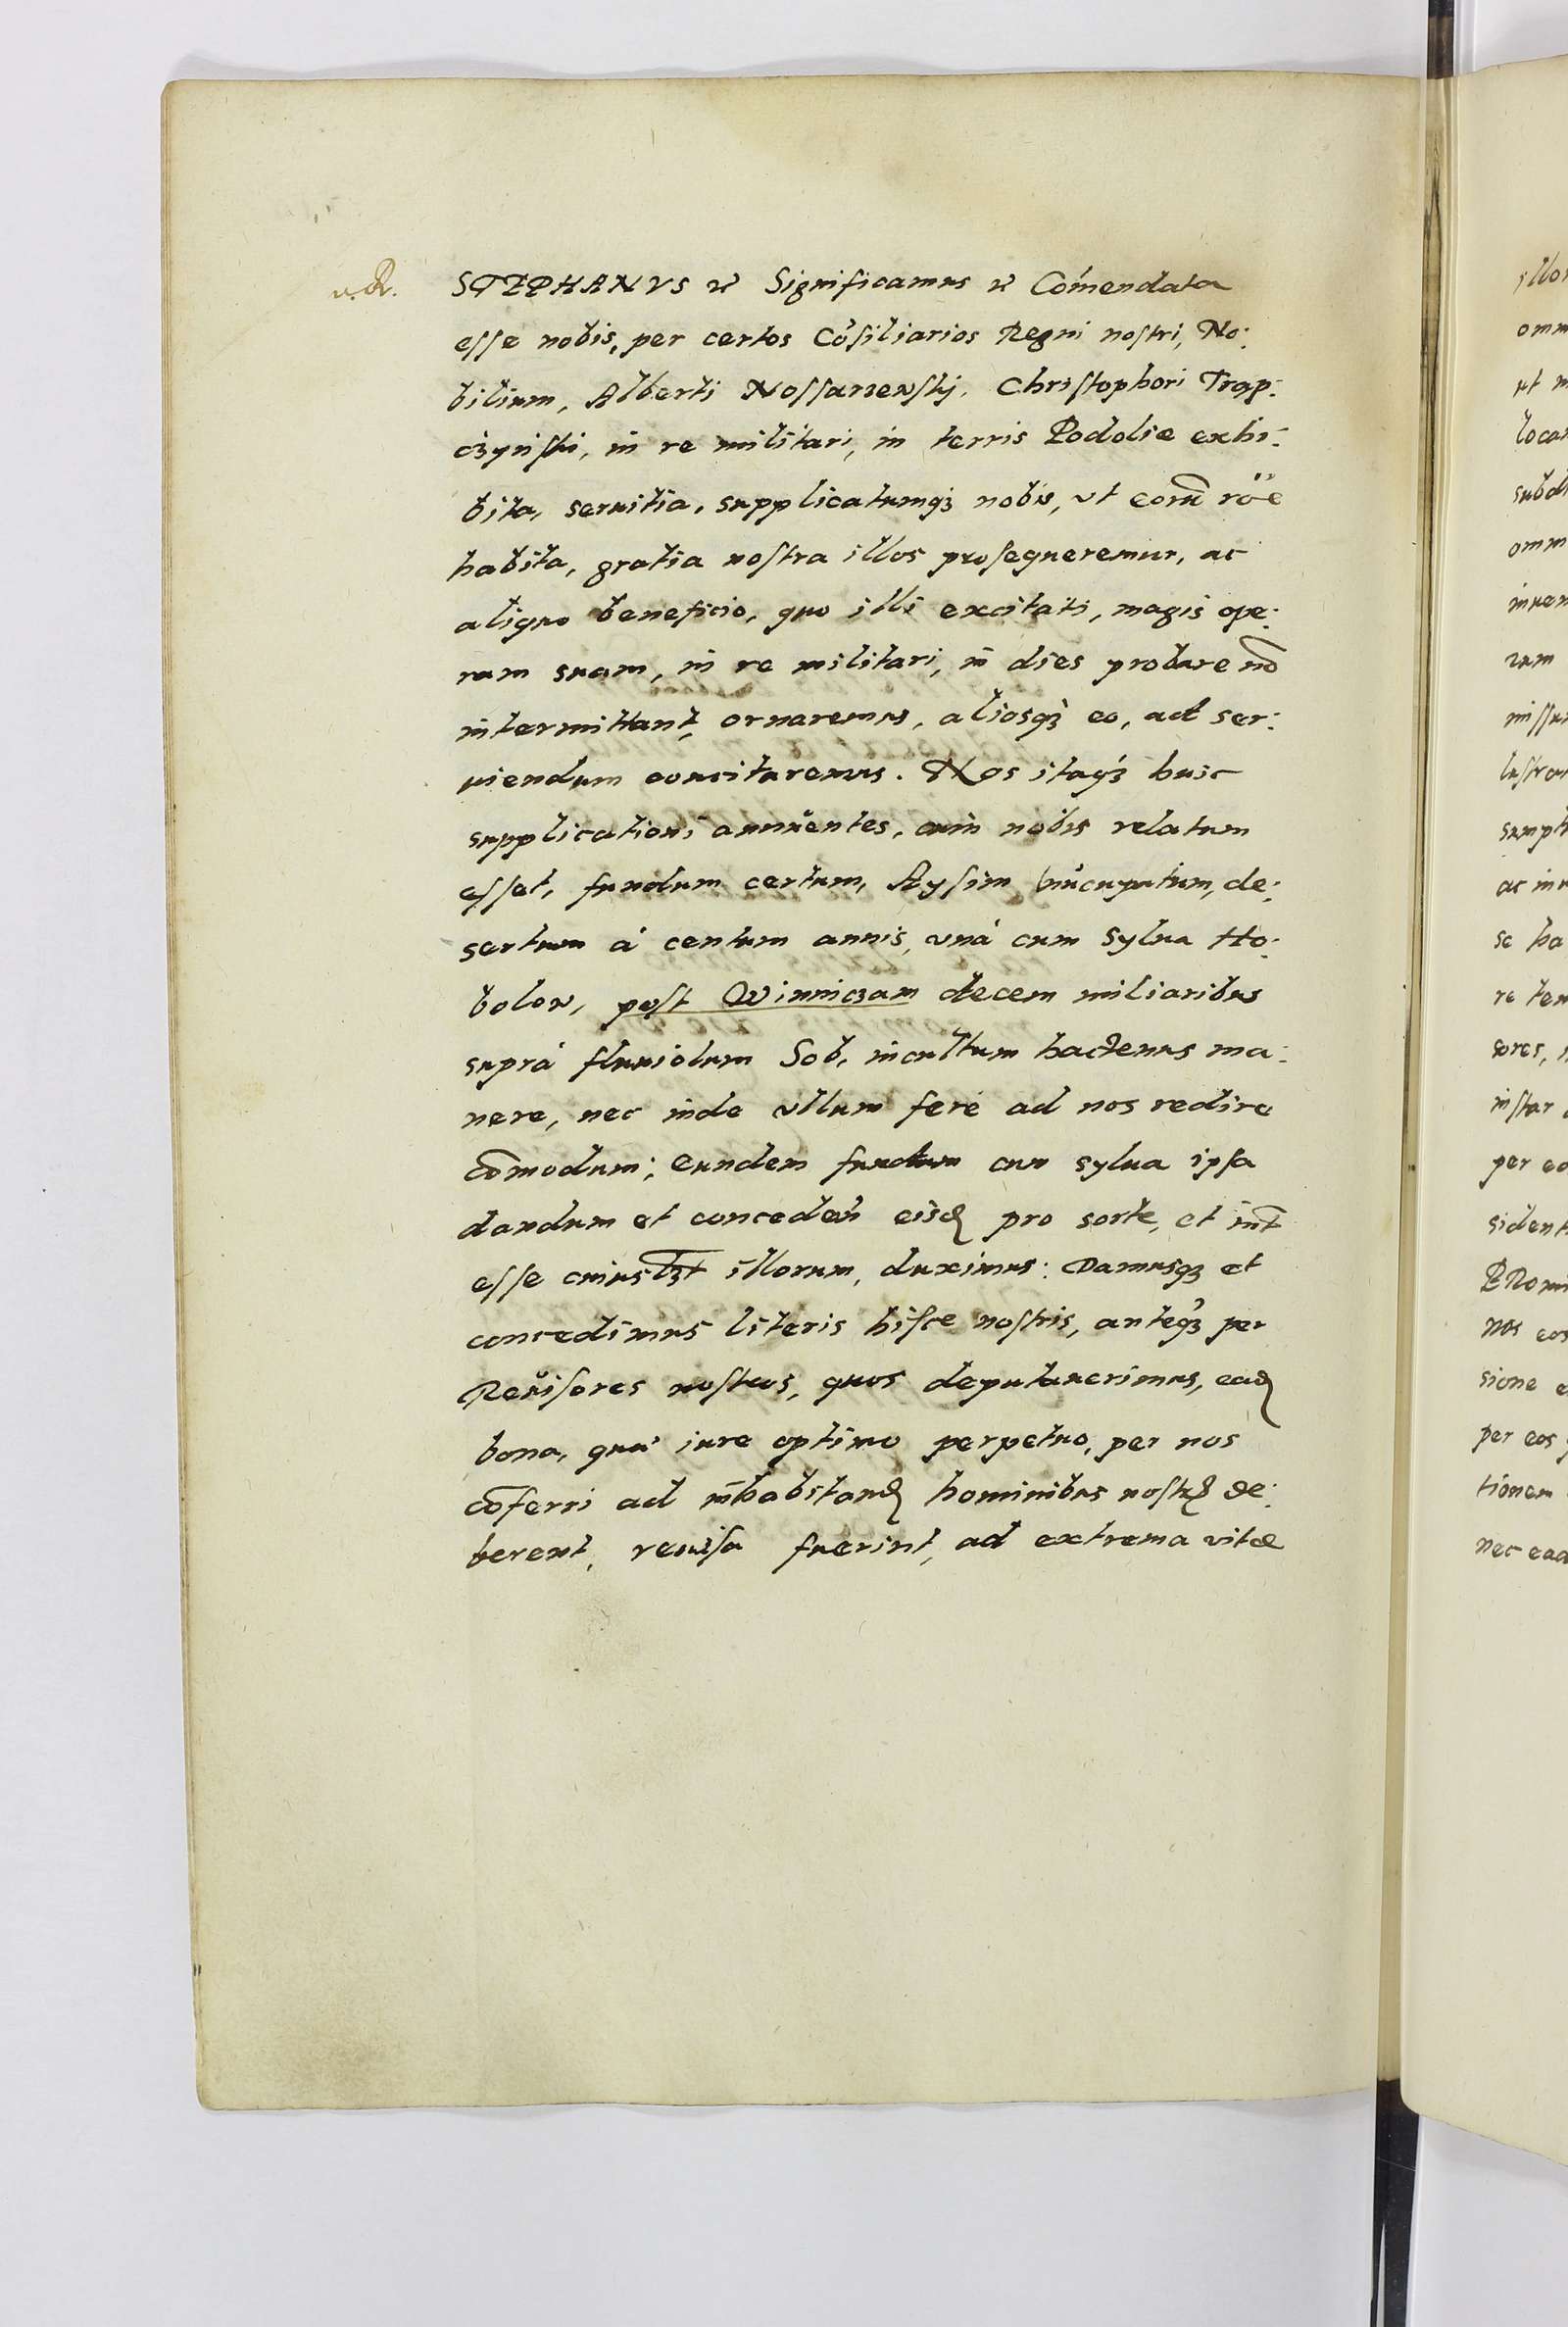 STEPHANVS etc Significamus etc Comendata
esse nobis, per certos Cõsiliarios Regni nostri, No:
bilium, Alberti Nossarzewskij, Christophori Trap:
czynski, in re militari, in terris Podoliæ exhi:
bita, seruitia, supplicatumqȝ nobis, vt eorũ rõe
habita, gratia nostra illos prosequeremur, ac
aliquo beneficio, quo illi excitati, magis ope:
ram suam, in re militari, in dies probare nõ
intermittant, ornaremus, aliosqȝ eo, ad ser:
uiendum concitaremus. Nos itaqȝ huic
supplicationi annuentes, cum nobis relatum
esset, fundum certum, Aysim nũcupatum, de:
sertum à centum annis, vnà cum Sylua Ho:
bolow, post Winniczam decem miliaribus
suprà fluuiolum Sob, incultum hactenus ma:
nere, nec inde vllum ferè ad nos redire
cõmodum; eundem fundum cum sylua ipsa
dandum et conceden̄ eisd pro sorte, et int
esse cuiuslȝt illorum, duximus: Damusqȝ et
concedimus literis hisce nostris, anteqȝ per
Reuisores nostros, quos deputauerimus, ead
bona, quæ iure optimo perpetuo, per nos
cõferri ad inhabitand hominibus nostr de:
berent, reuisa fuerint, ad extrema vitæ
illos
omn
ut
locar
subdi
omn
inuen
rum
missu
lustra
sumpt
ac in
se ha
re ten
cores,
instar
per eo
sident
PROmi
nos eos
sione
per eos
tionem
nec ead